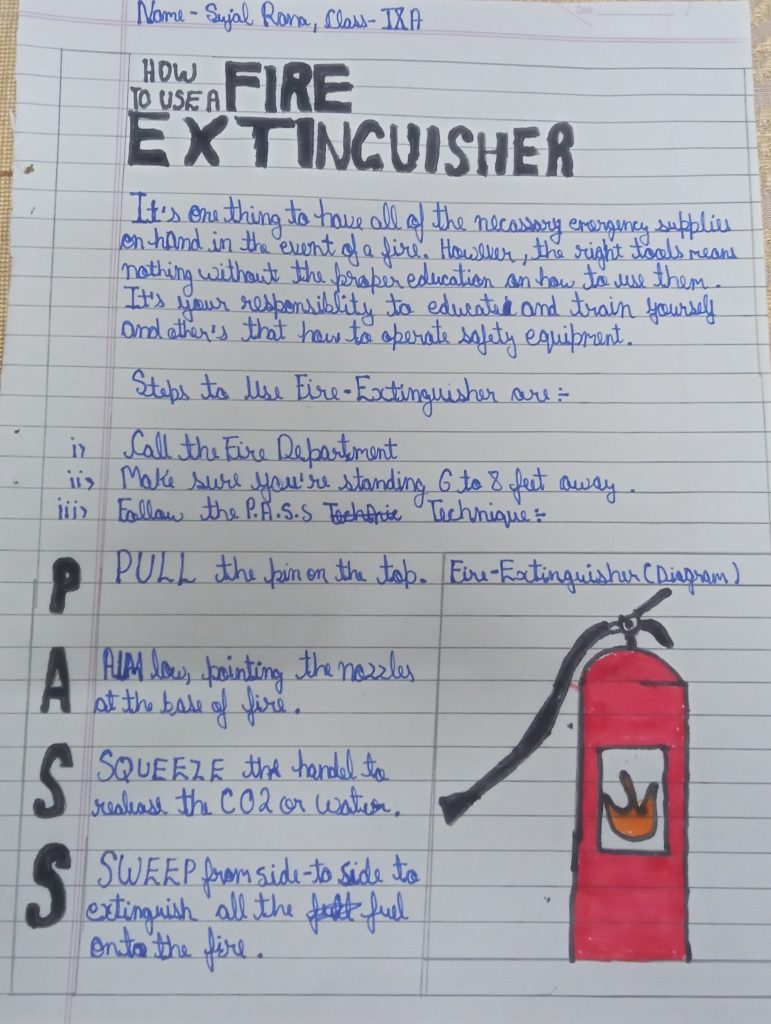 Name - Sujal Rana, Class - IXA
HOW
TO USE A FIRE
EXTINGUISHER
It's one thing to have all of the necassory emergency supplies
on hand in the event of a fire. However, the right tools means
nothing without the proper education on how to use them.
It's your responsiblity to educate and train yourself
and other's that how to operate safety equipment.
Steps to Use Fire-Extinguisher are :-
i> Call the Fire Department
ii> Make sure you're standing 6 to 8 feet away.
iii> Follow the P.A.S.S Technique :-
P PULL the pin on the top.
A AIM low, pointing the nozzles
at the base of fire.
S SQUEEZE the handel to
realease the CO2 or water.
S SWEEP from side-to side to
extinguish all the fuel
onto the fire.
Fire-Extinguisher (Diagram)